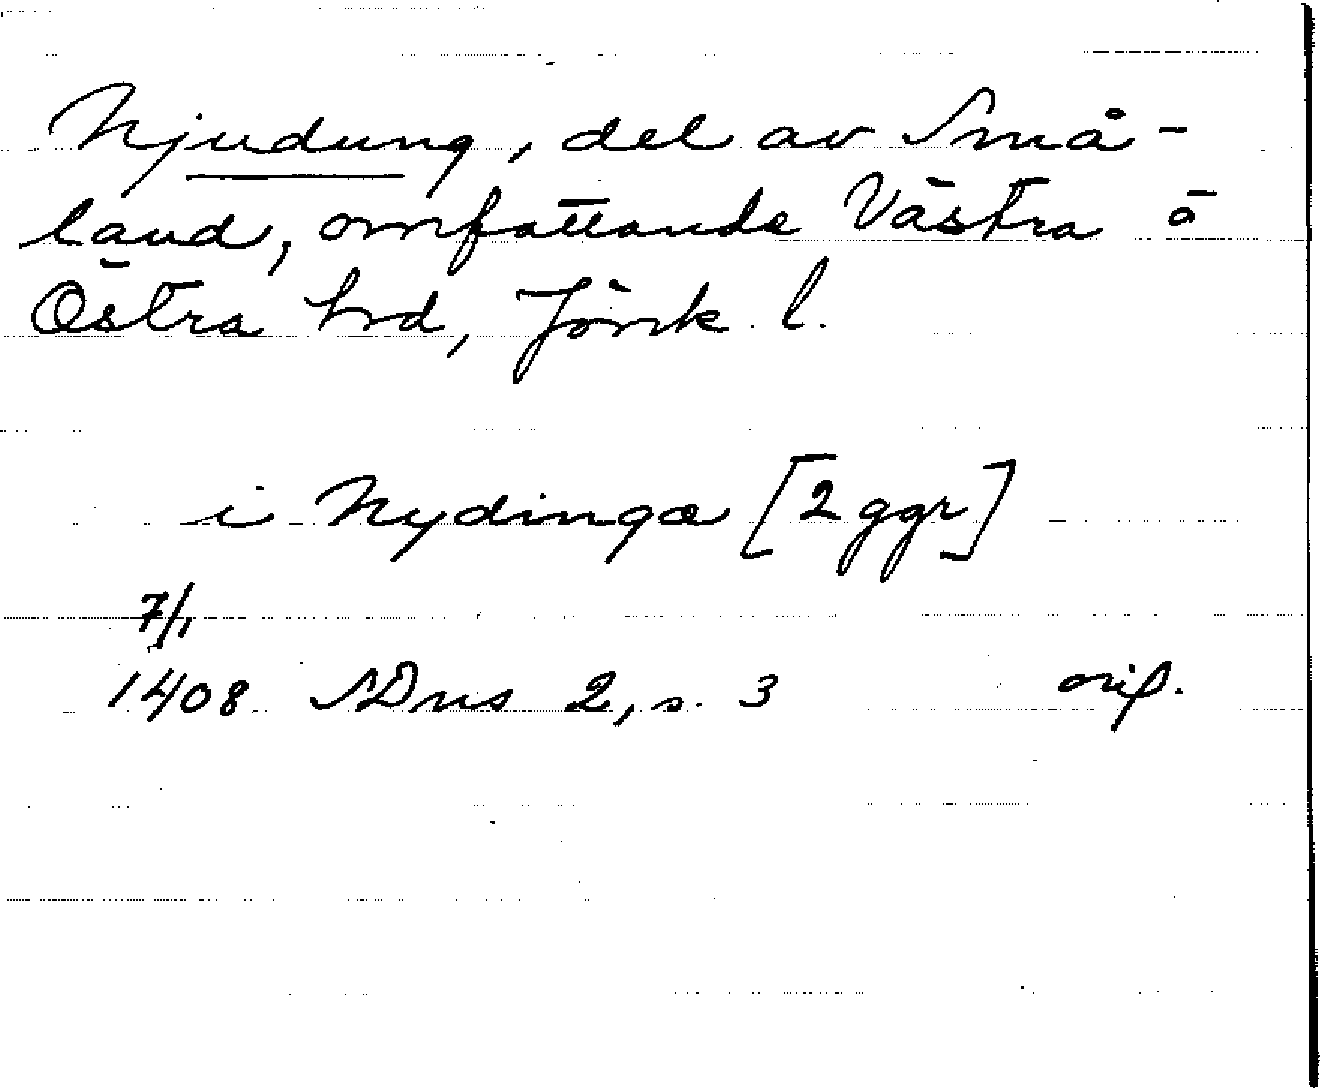 Njudung, del av Små-
land, omfattande Västra o
Östra hrd, Jönk. l.
i Nydingæ [2 ggr]
7/1
1408 SDns 2, s. 3 orig.